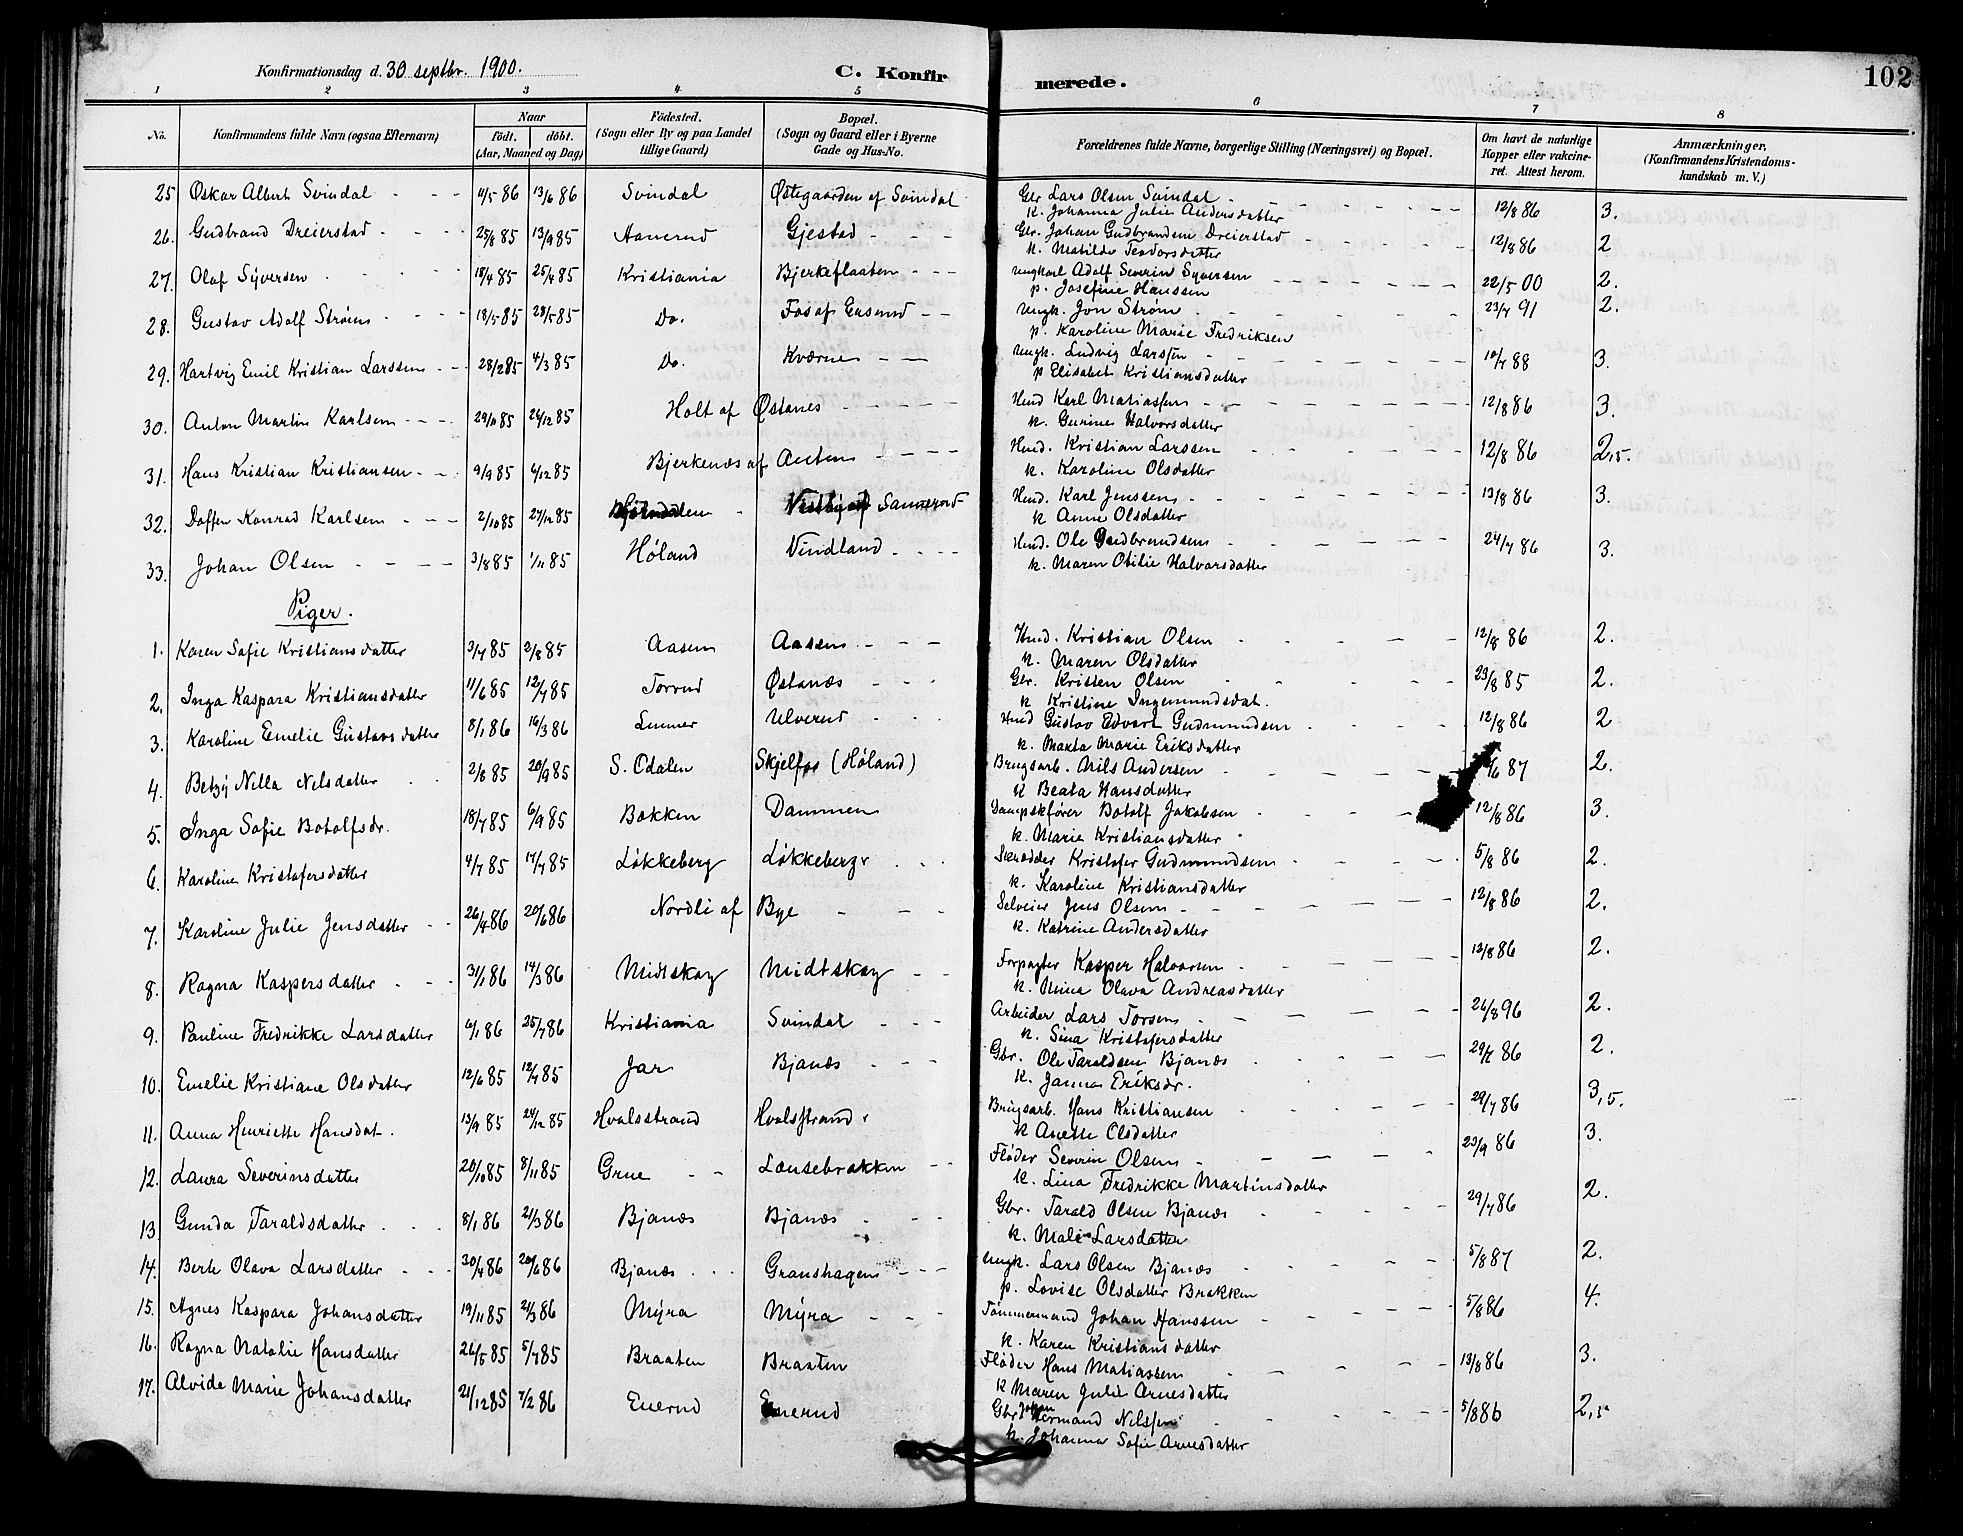 Konfirmationsdag d. 30 septbr. 1900. C. Konfirmerede. 102
1 2 3 4 5 6 7 8
No. Konfirmandens fulde Navn (ogsaa Efternavn) Naar født. døbt. (Aar, Maaned og Dag) Fødested. (Sogn eller By og paa Landet tillige Gaard) Bopæl. (Sogn og Gaard eller i Byerne Gade og Hus-No. Forældrenes fulde Navne, borgerlige Stilling (Næringsvei) og Bopæl. Om havt de naturlige Kopper eller vakcineret. Attest herom. Anmærkninger. (Konfirmandens Kristendomskundskab m. V.)
25 Oskar Albert Svindal 4/5 86 13/6 86 Svindal Østegaarden af Svindal Gbr Lars Olsen Svindal 12/8 86 3.
k. Johanna Julie Andersdatter
26. Gudbrand Dreierstad 25/8 85 13/9 85 Gjestad Gbr. Johan Gudbrandsen Dreierstad 12/8 86 2
k. Matilde Teodorsdatter
27. Olaf Syversen 18/4 85 25/4 85 Kristiania Bjerkeflaaten Ungkarl Adolf Severin Syversen 22/5 00 2.
p. Josefine Hanssen
28. Gustav Adolf Strøm 18/5 85 28/5 85 Do. Ungk. Jon Strøm 23/7 91 2.
p. Karoline Marie Fredriksen
29. Hartvig Emil Kristian Larssen 28/2 85 4/3 85 Do. Kværne Ungk. Ludvig Larssen 10/7 88 3.
p Elisabet Kristiansdatter
30. Anton Martin Karlsen 29/11 85 26/12 85 Holt af Østanes Husd Karl Matiassen 12/8 86 3.
k. Gurine Halvorsdatter
31. Hans Kristian Kristiansen 9/9 85 6/12 85 Bjerkenæs af Husd. Kristian Larssen 12/8 86 2,5.
k. Karoline Olsdatter
32. Doffen Konrad Karlsen 2/10 85 27/12 85 Sannerud Husd. Karl Jenssen 13/8 86 3.
k Anne Olsdatter
33. Johan Olsen 3/8 85 1/11 85 Høland Vindland Husd. Ole Gudbrandsen 24/7 86 3.
k. Maren Otilie Halvorsdatter
Piger.
1. Karen Sofie Kristiansdatter 3/7 85 2/8 85 Aasen Aassen Husd. Kristian Olsen 12/8 86 2.
k. Maren Olsdatter
2. Inga Kaspara Kristiansdatter 11/6 85 12/7 85 Torrud Østanæs Gbr. Kristen Olsen 23/8 85 2.
k Kristine Ingemundsdat.
3. Karoline Emelie Gustavsdatter 8/1 86 14/3 86 Lunner Ulverud Husd Gustav Edvart Gudmundsen 12/8 86 2
k. Marta Marie Eriksdatter
4. Betzy Nella Nilsdatter 2/8 85 20/9 85 S. Odalen Skjelfos (Høland) Brugsarb. Nils Andersen /6 87 2.
k Beata Hansdatter
5. Inga Sofie Botolfsdr. 18/7 85 6/9 85 Bakken Dammen Dampskfører Botolf Jakobsen 12/8 86 3.
k. Marie Kristiansdatter
6. Karoline Kristofersdatter 4/7 85 17/7 85 Løkkeberg Løkkeberg Skrædder Kristofer Gudmundsen 5/8 86 2.
k. Karoline Kristiansdatter
7. Karoline Julie Jensdatter 26/4 86 20/6 86 Nordli af Bye Selveier Jens Olsen 12/8 86 2.
k. Katrine Andersdatter
8. Ragna Kaspersdatter 31/1 86 14/3 86 Midtskog Midtskog Forpagter Kasper Halvorsen 12/8 86 2.
k. Mina Olava Andreasdatter
9. Pauline Fredrikke Larsdatter 6/1 86 25/7 86 Kristiania Svindal Arbeider Lars Torsen 26/8 96 2.
k. Sina Kristofersdatter
10. Emelie Kristiane Olsdatter 12/6 85 12/7 85 Jar Bjanæs Gbr. Ole Taraldsen Bjanæs 29/7 86 2.
k. Janna Eriksdr.
11. Anna Henriette Hansdat. 13/9 85 26/12 85 Hvalsstrand Hvalsstrand Brugsarb. Hans Kristiansen 29/7 86 3,5.
k Anette Olsdatter
12. Laura Severinsdatter 20/10 85 8/11 85 Grue Lausebrakken Fløder Severin Olsen 23/9 86 3.
k. Lina Fredrikke Martinsdatter
13. Gunda Taraldsdatter 8/1 86 21/3 86 Bjanæs Bjanæs Gbr. Tarald Olsen Bjanæs 29/7 86 2.
k. Mali Larsdatter
14. Berte Olava Larsdatter 30/4 86 20/6 86 Bjanæs Granshagen Ungk. Lars Olsen Bjanæs 5/8 87 2.
p. Lovise Olsdatter Brakken
15. Agnes Kaspara Johansdatter 19/11 85 21/3 86 Myra Myra Tømmermand Johan Hanssen 5/8 86 4.
k. Karen Kristiansdatter
16. Ragna Natalie Hansdatter 26/5 85 5/7 85 Braaten Braaten Fløder Hans Matiassen 13/8 86 3.
k Maren Julie Arnesdatter
17. Alvide Marie Johansdatter 21/12 85 7/2 86 Enerud Enerud Gbr Johan Hermand Nilssen 5/8 86 2,5
k. Johanna Sofie Arnesdatter